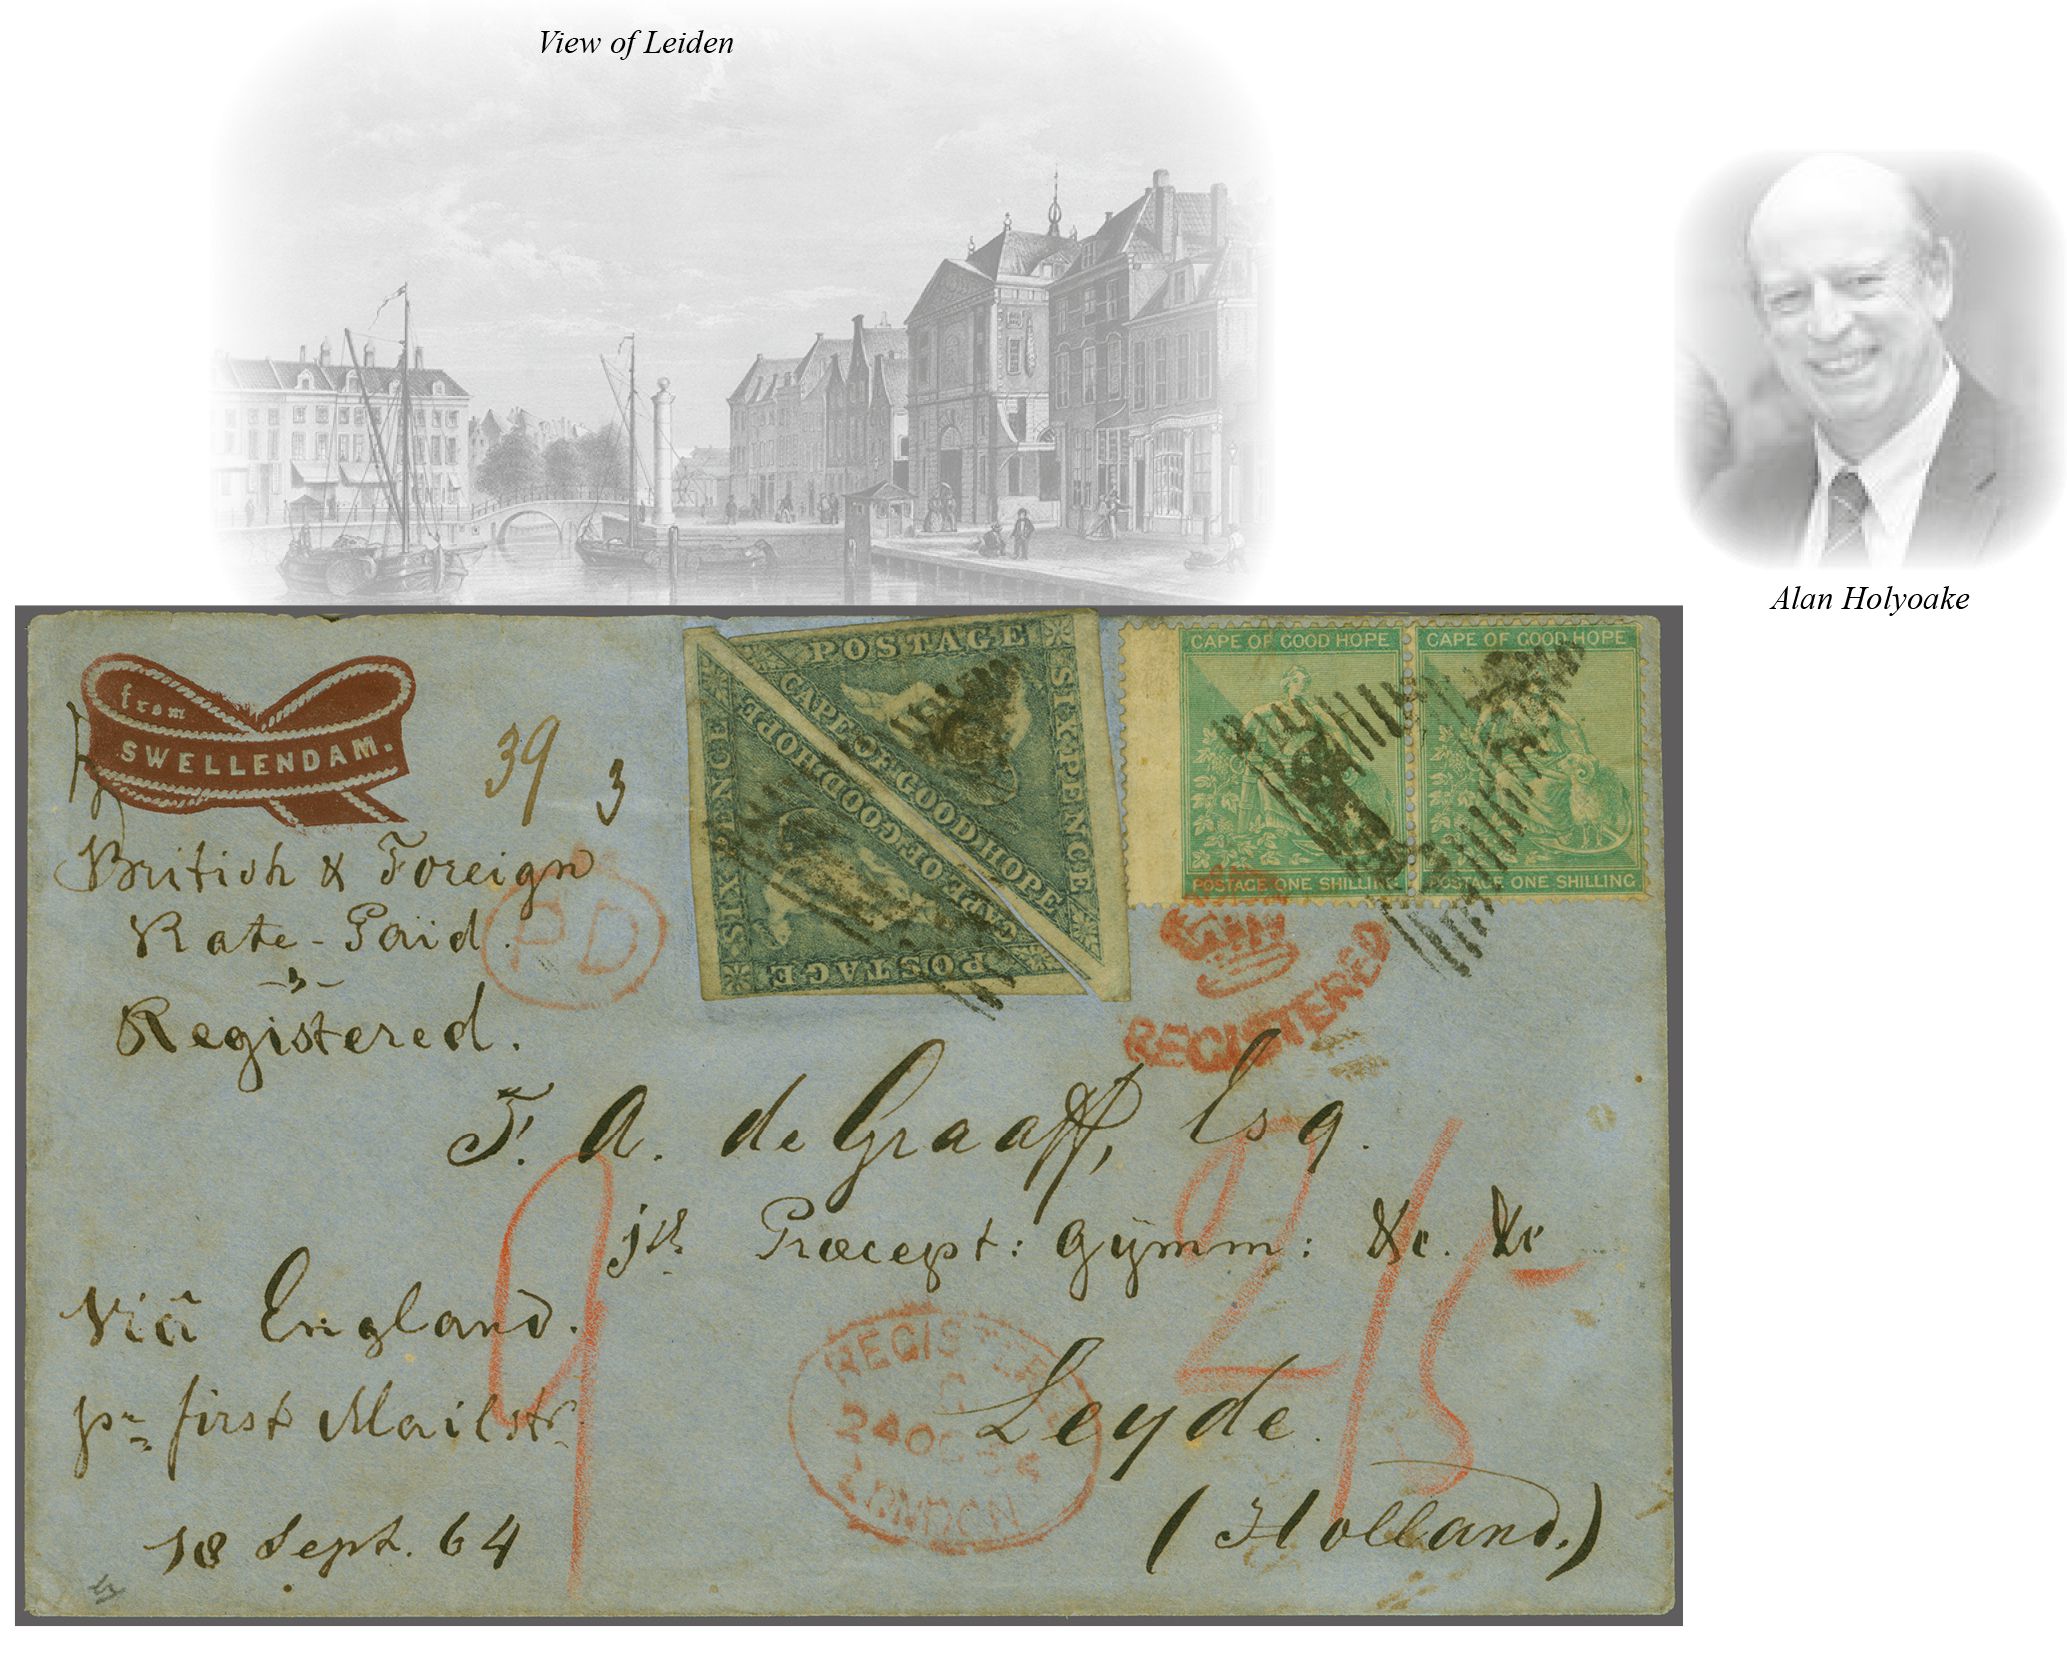 View of Leiden
Alan Holyoake
from
SWELLENDAM.
39
3
British & Foreign
Rate-Paid.
Registered.
PD
POSTAGE
SIX PENCE
CAPE OF GOOD HOPE
CAPE OF GOOD HOPE
SIX PENCE
POSTAGE
CAPE OF GOOD HOPE
POSTAGE ONE SHILLING
CAPE OF GOOD HOPE
POSTAGE ONE SHILLING
REGISTERED
A. de Graaff, Esq.
Præcept: Gymm: &c. &c
9
2/5
Via England.
pr first Mailstr
18 Sept. 64
REGISTERED
C
24 OC 64
LONDON
Leyde.
(Holland.)